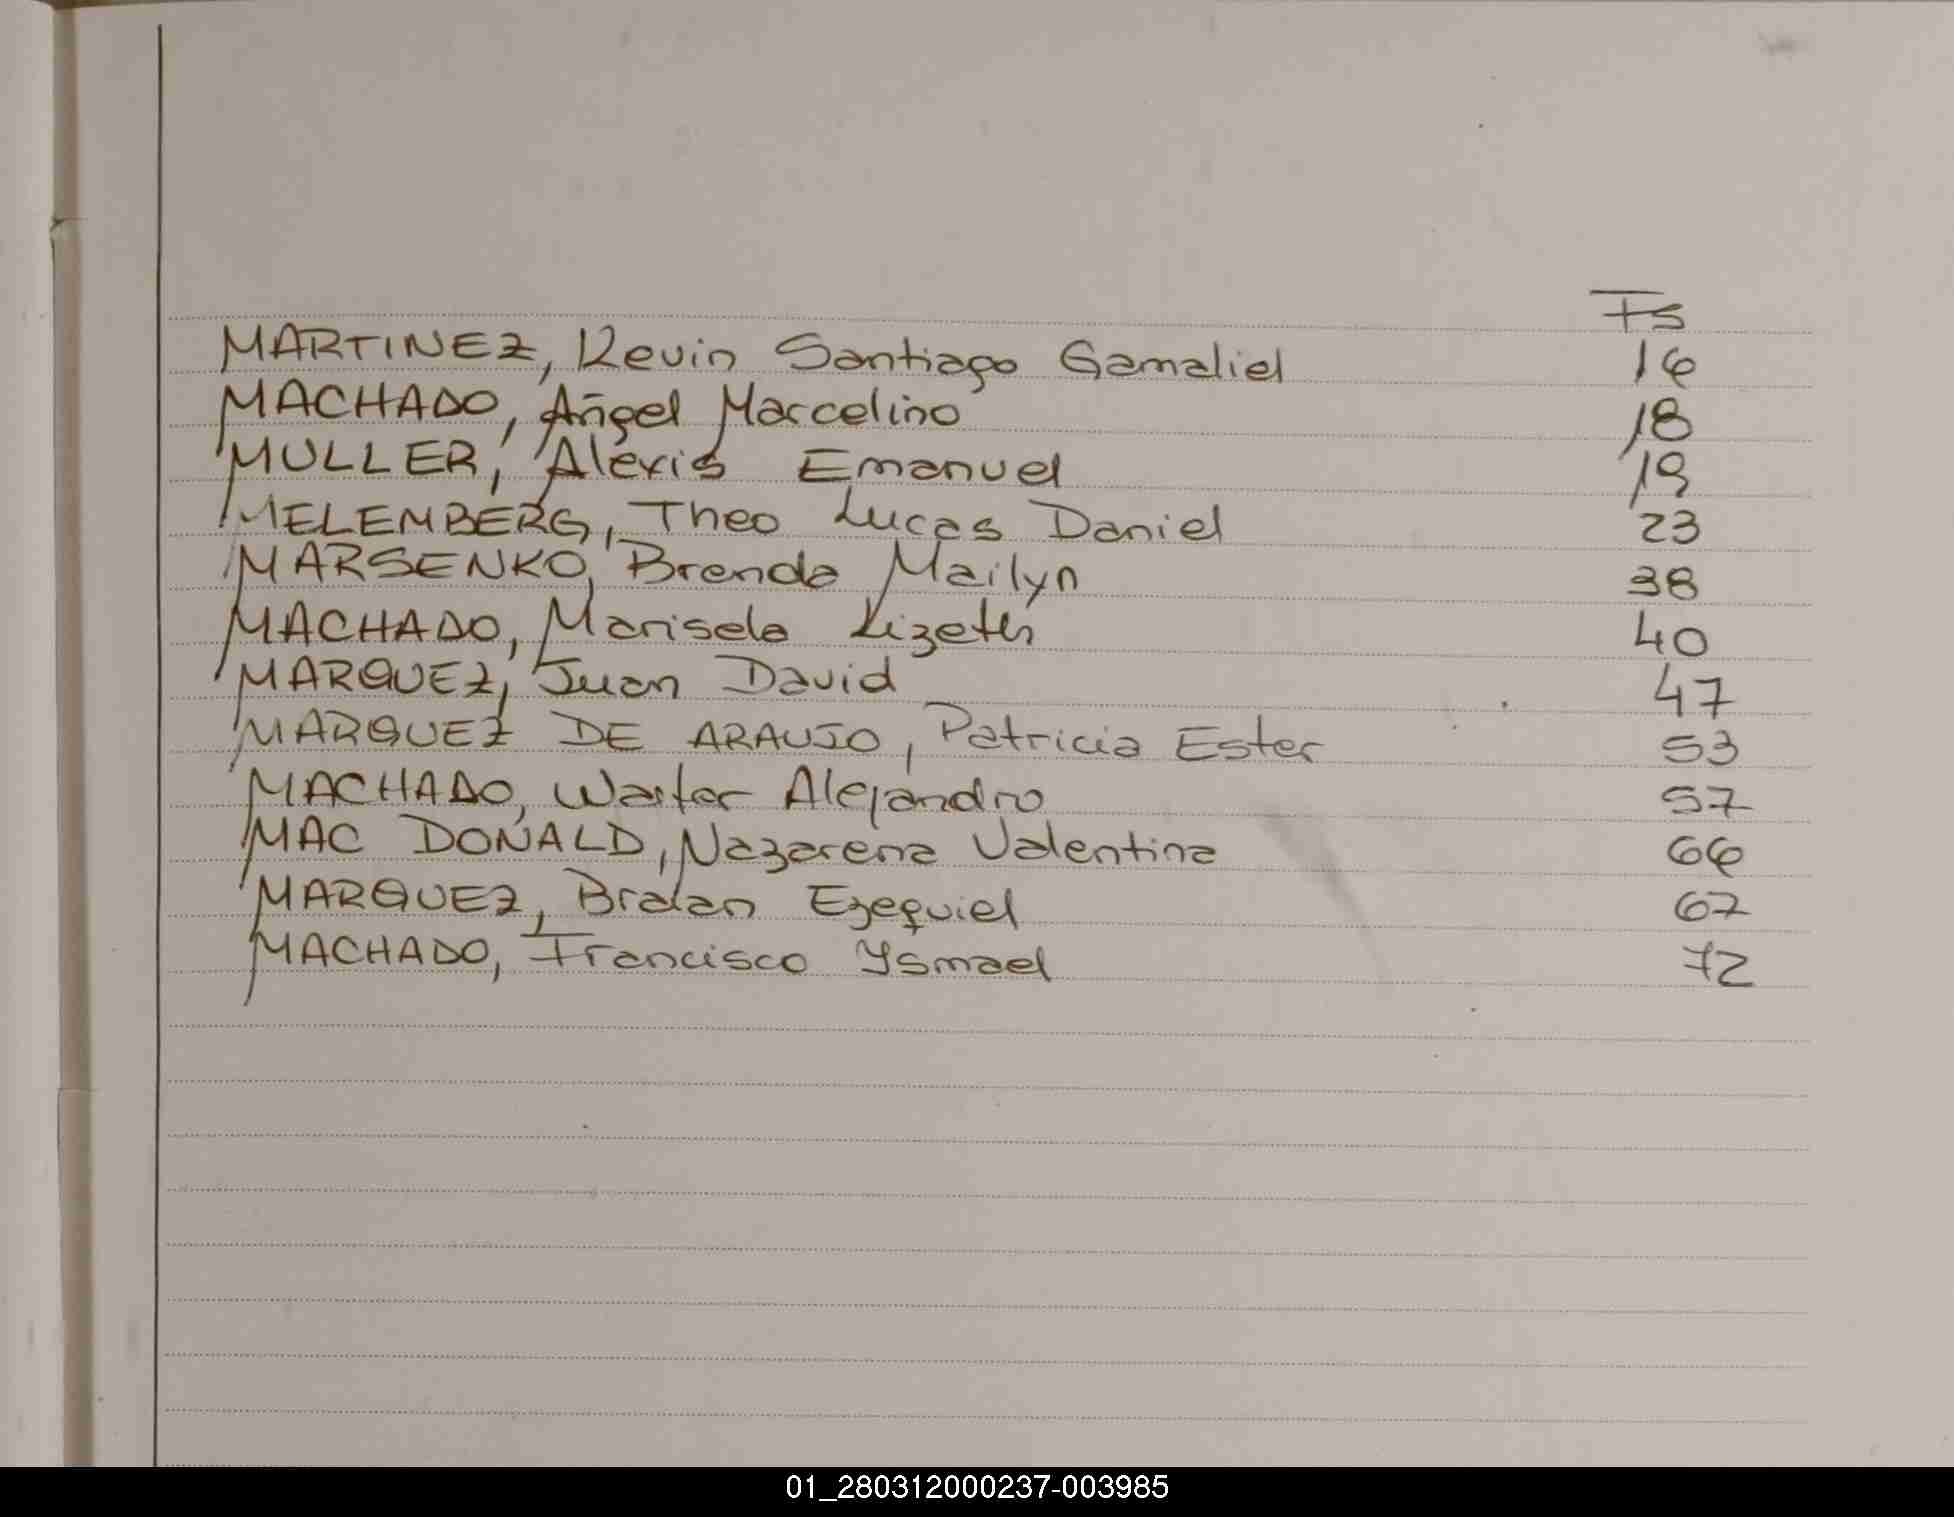 Fs
MARTINEZ, Kevin Santiago Gamaliel 16
MACHADO, Angel Marcelino 18
MULLER, Alexis Emanuel 19
MELEMBERG, Theo Lucas Daniel 23
MARSENKO, Brenda Mailyn 38
MACHADO, Marisela Lizeth 40
MARQUEZ, Juan David 47
MARQUEZ DE ARAUJO, Patricia Ester 53
MACHADO, Walter Alejandro 57
MAC DONALD, Nazarena Valentina 66
MARQUEZ, Braian Ezequiel 67
MACHADO, Francisco Ysmael 72
01_280312000237-003985